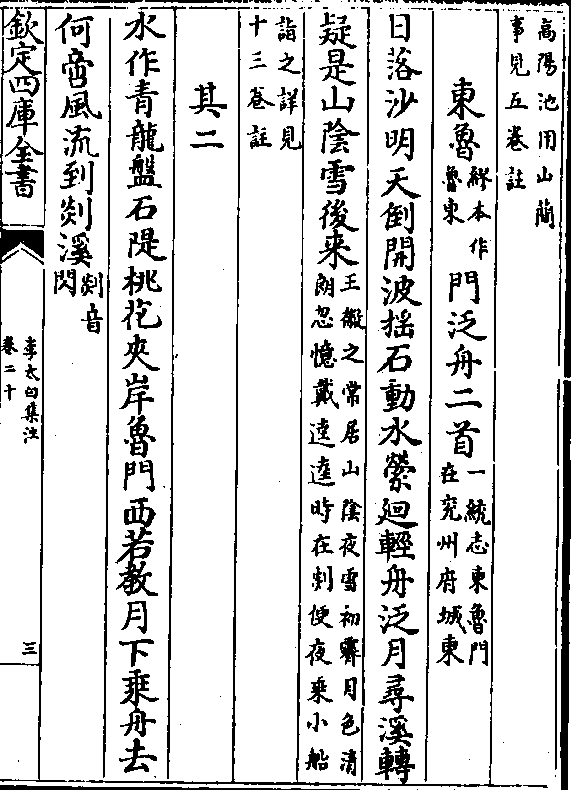 高陽池用山簡
事見五巻註
東魯繆本作
魯東
門泛舟二首一統志東魯門
在兖州府城東
日落沙明天倒開波揺石動水縈廻輕舟泛月尋溪轉
疑是山陰雪後来王徽之常居山陰夜雪初霽月色清
朗忽憶戴逵逵時在剡便夜乘小船
詣之詳見
十三巻註
其二
水作青龍盤石隄桃花夾岸魯門西若教月下乘舟去
何啻風流到剡溪剡音
閃
欽定四庫全書
李太白集注
卷二十
三